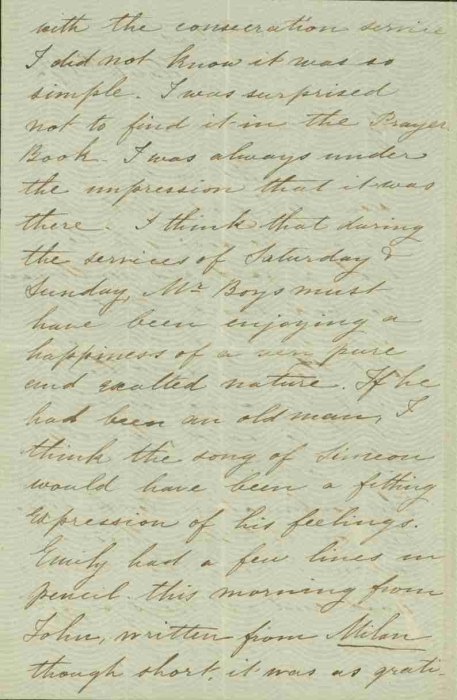 with the consecration service
I did not know it was so
simple. I was surprised
not to find it in the Prayer
Book. I was always under
the impression that it was
there. I think that during
the services of Saturday &
Sunday, Mr Boys must
have been enjoying a
happiness of a very pure
and exalted nature. If he
had been an old man, I
think the song of Simeon
would have been a fitting
expression of his feelings.
Emily had a few lines in
pencil this morning from
John, written from Milan
though short, it was as grati-